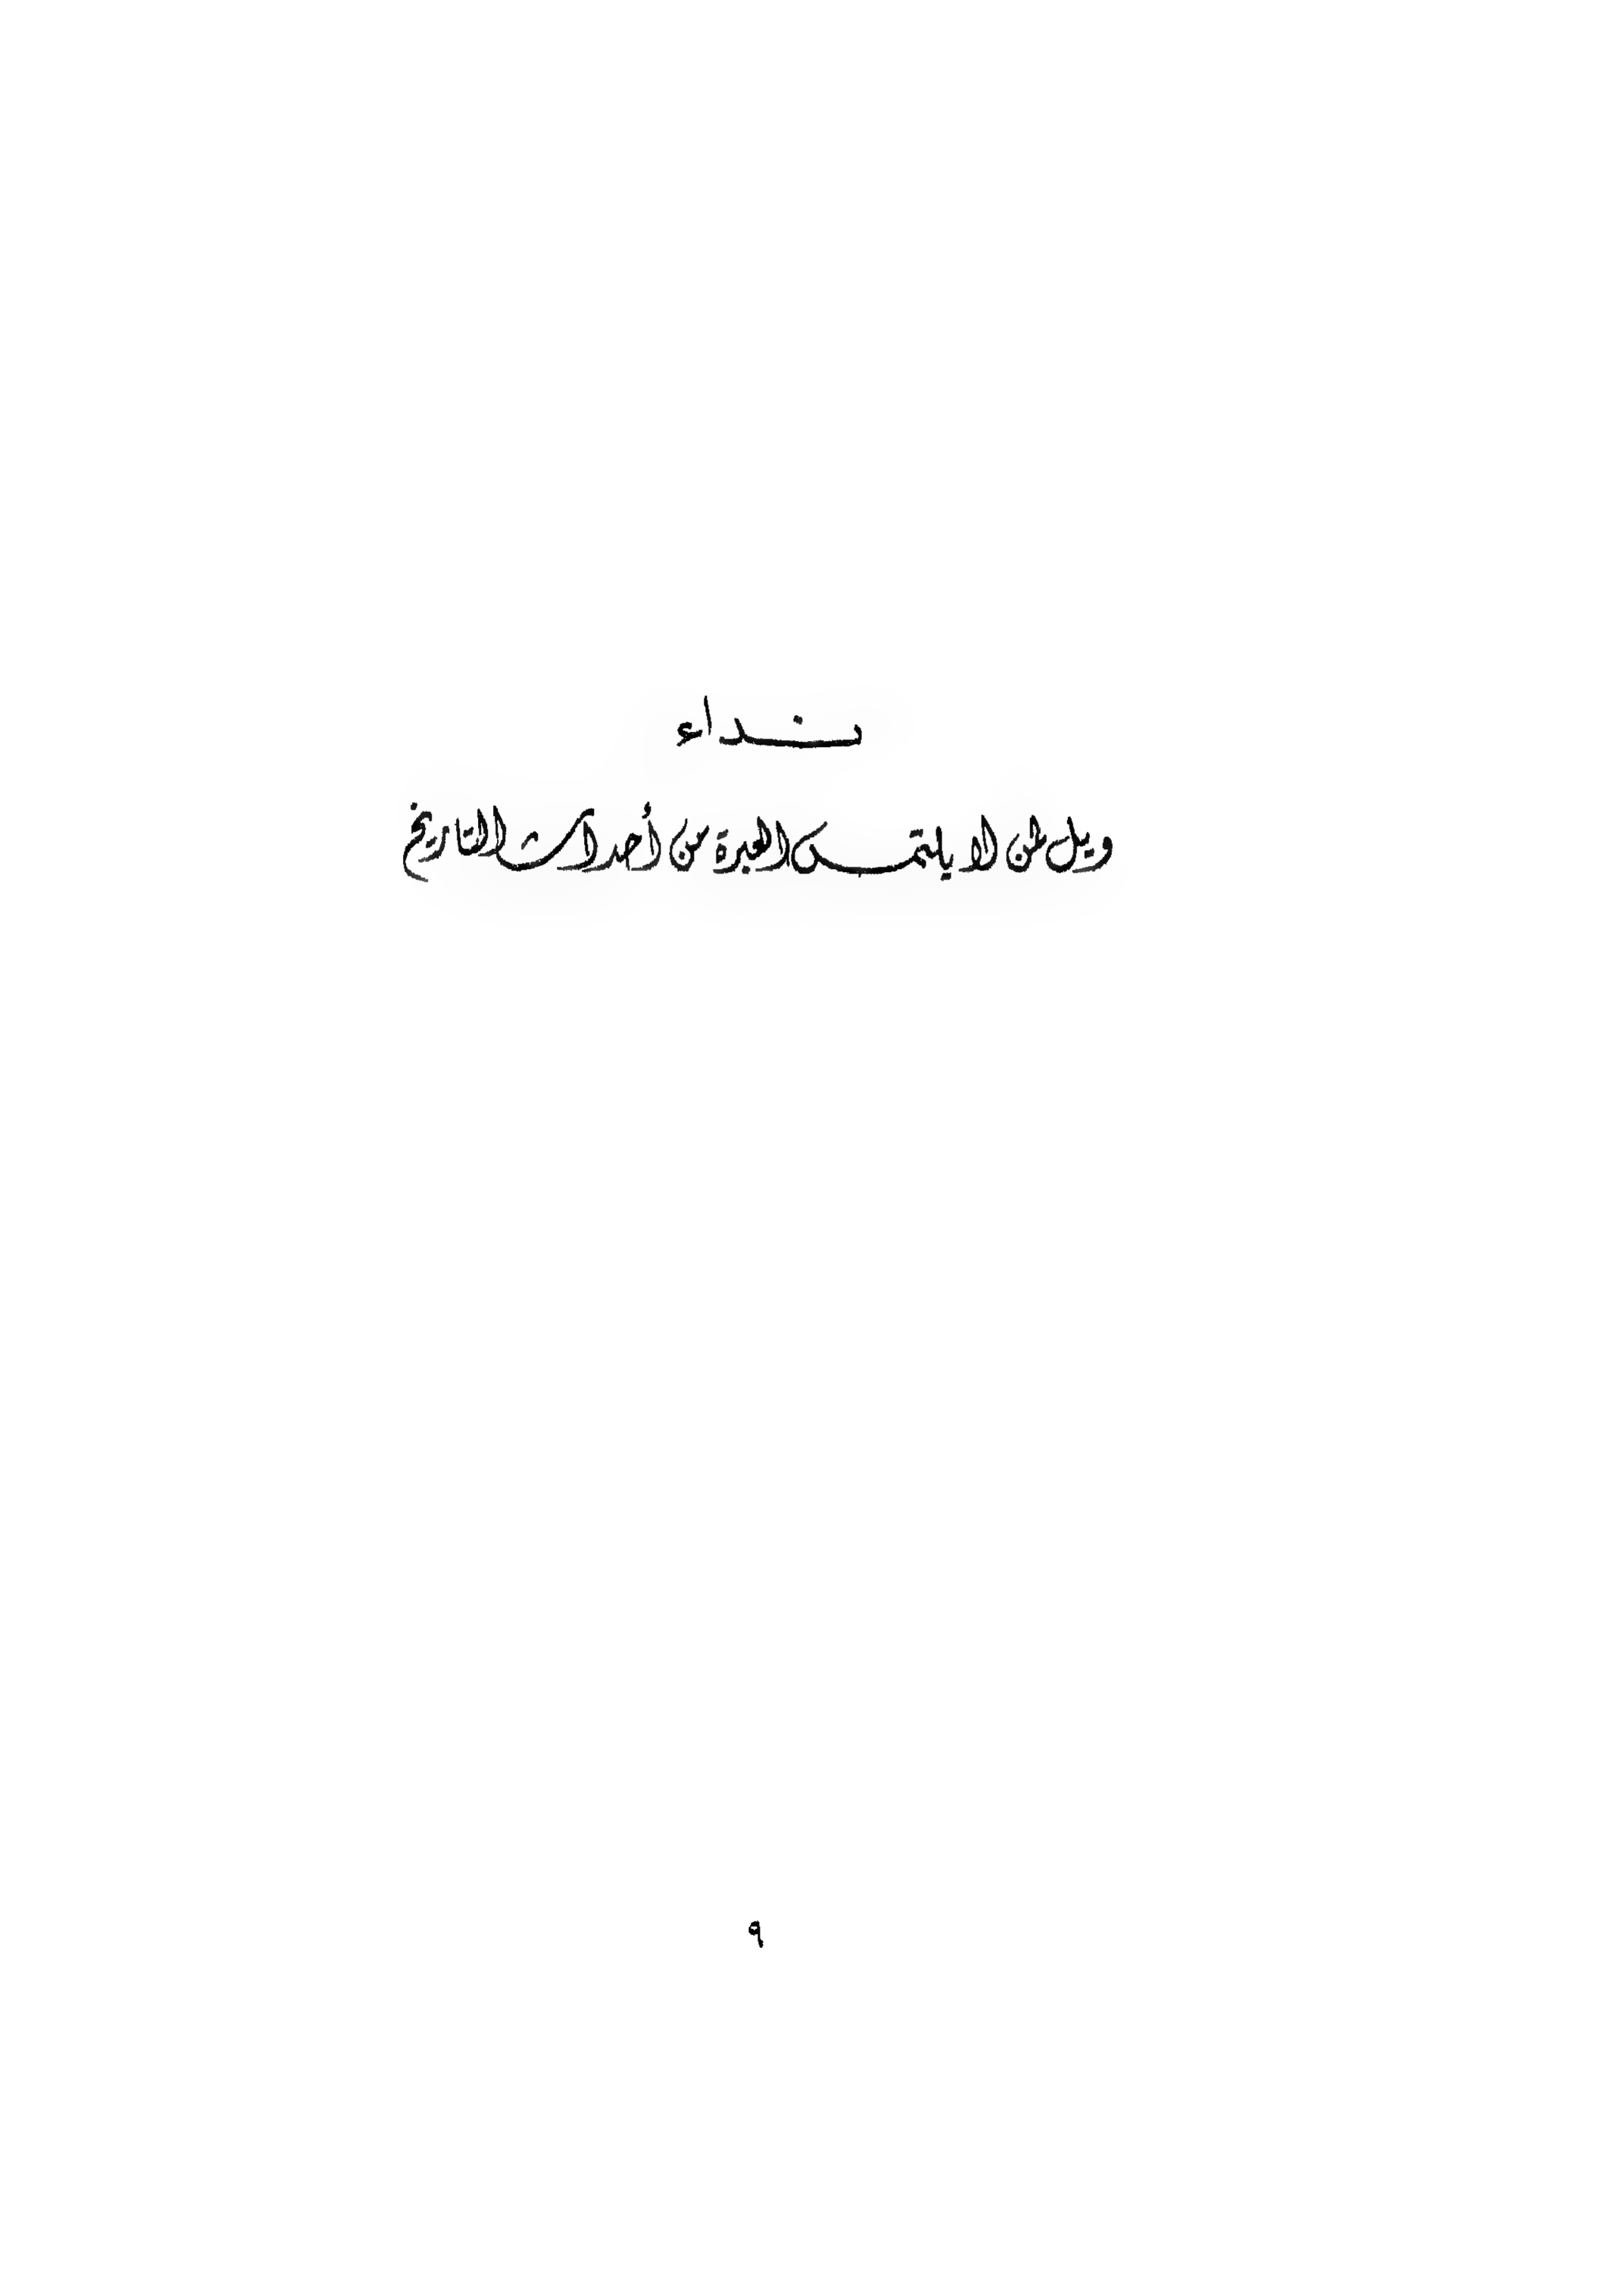 نداء
ويل لمن لا يلتمس العبرة من أحداث التاريخ
٩